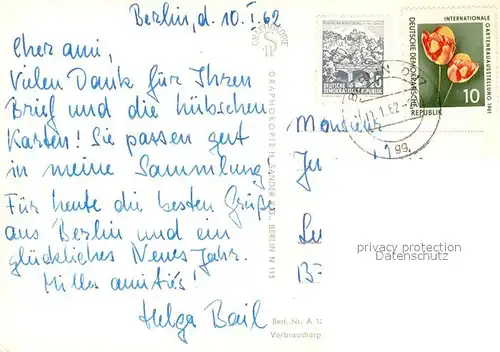 Berlin, d. 10.I.62
Cher ami,
Vielen Dank für Ihren
Brief und die hübschen
Karten! Sie passen gut
in meine Sammlung!
Für heute die besten Grüße
aus Berlin und ein
glückliches Neues Jahr.
Milles amitiés!
Helga Bail
GRAPHOKOPIE H. SANDER KG., BERLIN N 113
Best.-Nr. A 12
Verbraucherp
DEUTSCHE
DEMOKRATISCHE REPUBLIK
INTERNATIONALE
GARTENBAUAUSSTELLUNG 1961
DEUTSCHE DEMOKRATISCHE
REPUBLIK
10
1.62
Monsieur
privacy protection
Datenschutz